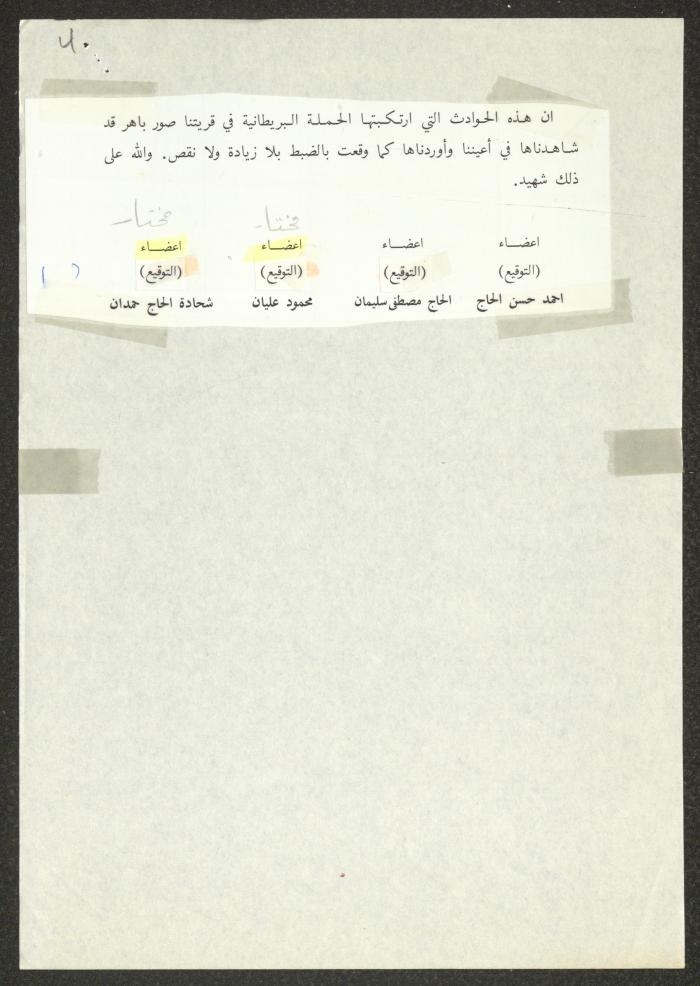 ان هـذه الحوادث التي ارتكبتها الحملة البريطانية في قريتنا صور باهر قد
شـاهدناها في أعيننا وأوردناها كما وقعت بالضبط بلا زيادة ولا نقص. والله على
ذلك شهيد.
مختار مختار
اعضـــاء اعضـــاء اعضـــاء اعضـــاء
(التوقيع) (التوقيع) (التوقيع) (التوقيع)
احمد حسن الحاج الحاج مصطفى سليمان محمود عليان شحادة الحاج حمدان